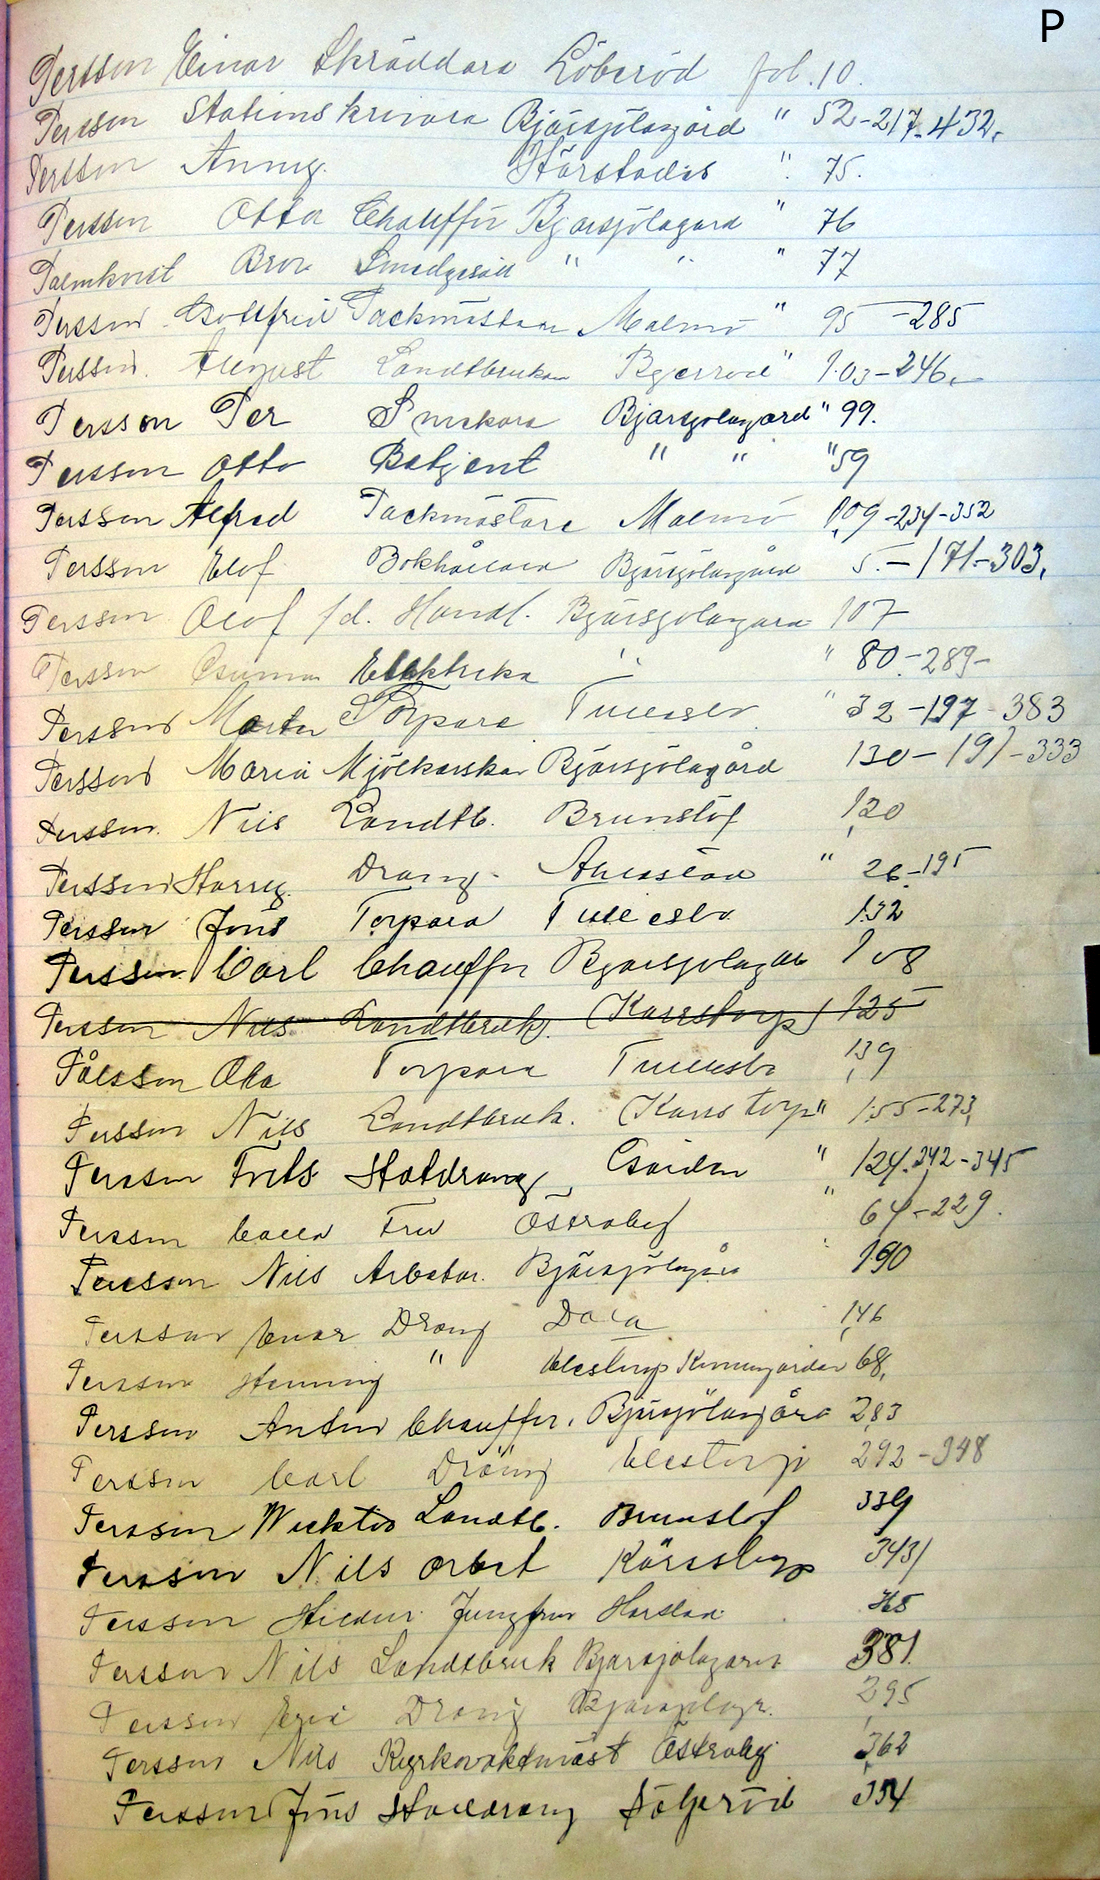 P
Persson Einar Skräddare Löberöd fol. 10.
Persson Stationskrivare Bjärsjölagård " 52-217-432.
Persson Anny. Hörstadis " 75.
Persson Otto Chaufför Bjärsjölagård " 76
Palmkvist Bror Smedgesäll " " " 77
Persson Gottfrid Packmästare Malmö " 95-285
Persson. August Landtbrukare Bjerröd " 103-246.
Persson Per Snickare Bjärsjölagård " 99.
Persson Otto Betjent " " " 59
Persson Alfred Packmästare Malmö 109-234-352
Persson Elof Bokhållare Bjärsjölagård 5.-171-303.
Persson Olof fd. Handl. Bjärsjölagård 107
Persson Gunnar Elektrika " " 80-289-
Persson Martin Torpare Tullesbo " 32-197-383
Persson Maria Mjölkerska Bjärsjölagård 130-191-333
Persson. Nils Landtb. Brunslöf 120
Persson Harry. Dräng. " 26-195
Persson Jöns Torpare Tullesbo 132
Persson Carl Chaufför Bjärsjölagård 108
Persson Nils Landtbruk. (Karrstorp) 125
Pålsson Ola Torpare Tullesbo 139
Persson Nils Landtbruk. (Karrstorp " 155-273.
Persson Frits Statdräng Gården " 124-242-345
Persson Fru Östraby " 64-229.
Persson Nils Arbetar. Bjärsjölagård " 190
Persson Einar Dräng 146
Persson Henning " Elestorp 68.
Persson Anton Chauffför. Bjärsjölagård 283
Persson Carl Dräng Elestorp 292-348
Persson Wicktor Landtb. Brunslöf 339
Persson Nils arbet Kärrstorp 343
Persson Jungfru Harstad 365
Persson Nils Landtbruk Bjärsjölagård 381.
Persson Eric Dräng Bjärsjölagr. 295
Persson Nils Kyrkovaktmäst Östraby 362
Persson Jöns Stalldräng Sötjeröd 334